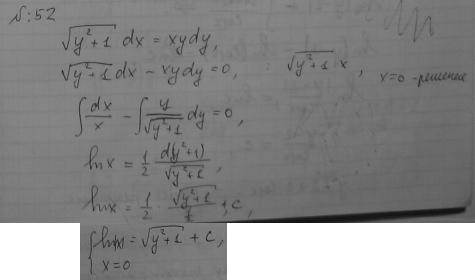 N:52
√(y²+1) dx = xydy,
√(y²+1) dx − xydy = 0, : √(y²+1) x, x=0 - решение
∫ dx/x − ∫ y/√(y²+1) dy = 0,
ln x = 1/2 d(y²+1)/√(y²+1),
ln x = 1/2 · √(y²+1)/(1/2) + C,
{ ln|x| = √(y²+1) + C,
x=0